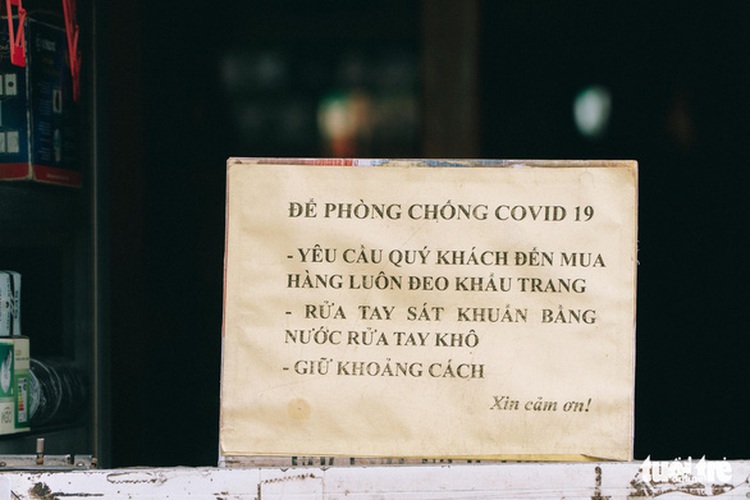 ĐỂ PHÒNG CHỐNG COVID 19
- YÊU CẦU QUÝ KHÁCH ĐẾN MUA
HÀNG LUÔN ĐEO KHẨU TRANG
- RỬA TAY SÁT KHUẨN BẰNG
NƯỚC RỬA TAY KHÔ
- GIỮ KHOẢNG CÁCH
Xin cảm ơn!
tuổi trẻ